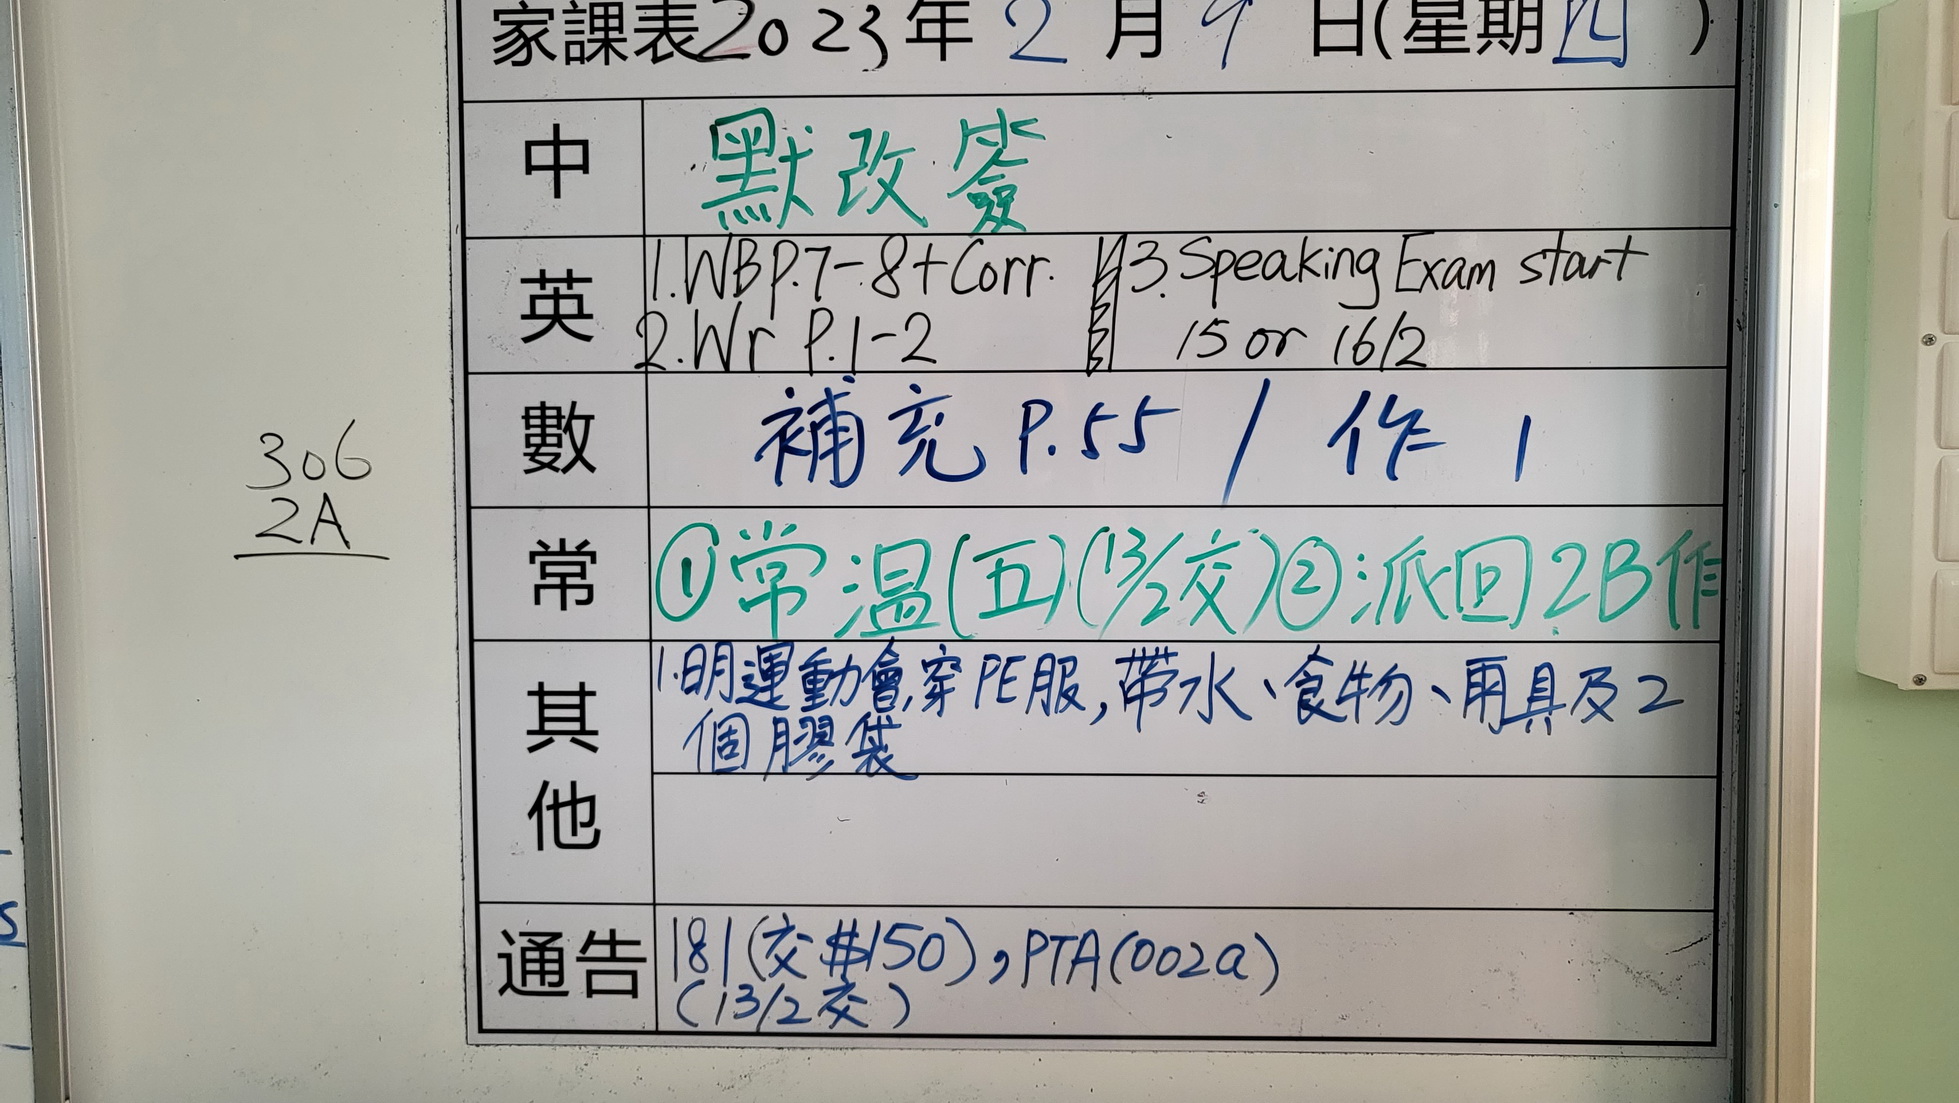 家課表2023年2月9日(星期四)
中
默改簽
英
1.WBP.7-8+Corr.
2.Wr P.1-2
3.Speaking Exam start
15 or 16/2
數
補充 P.55 / 作 1
常
①常温(五)(13/2交)②派回2B作
其他
1.明運動會,穿PE服,帶水、食物、雨具及2
個膠袋
通告
181(交$150),PTA(002a)
(13/2交)
306
2A